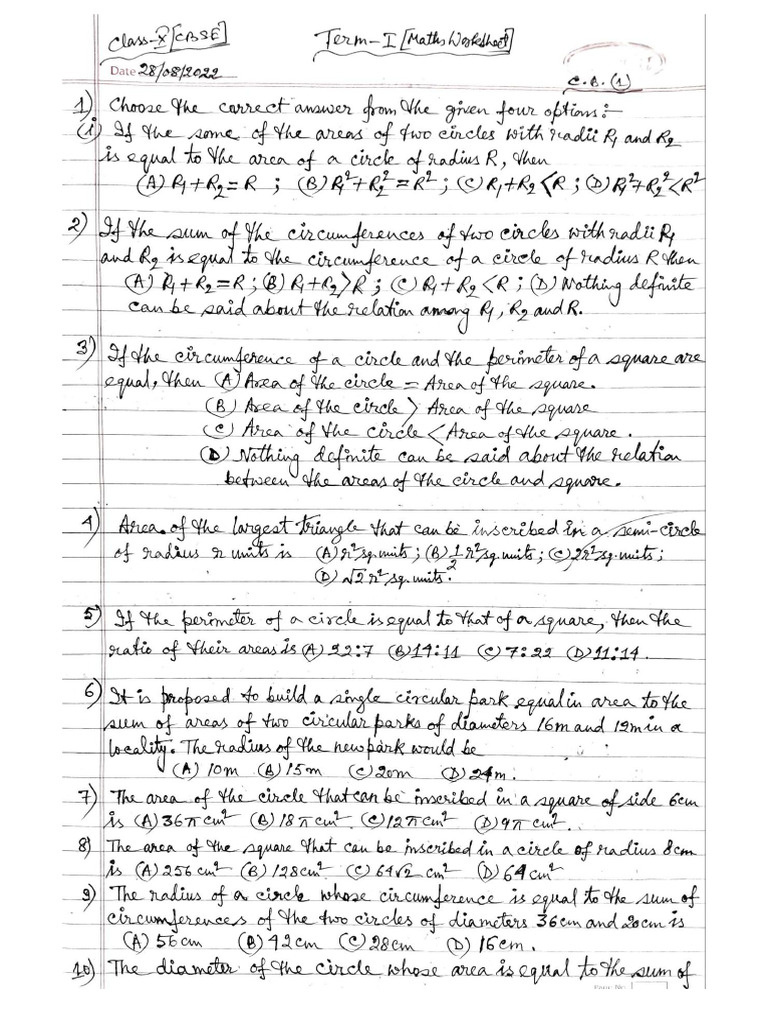 Class-X [CBSE] Term-I [Maths Worksheet]
Date 28/08/2022
C.B. (1)
1) Choose the correct answer from the given four options:-
(i) If the some of the areas of two circles with radii R₁ and R₂
is equal to the area of a circle of radius R, then
(A) R₁+R₂=R ; (B) R₁²+R₂²=R² ; (C) R₁+R₂<R ; (D) R₁²+R₂²<R²
2) If the sum of the circumferences of two circles with radii R₁
and R₂ is equal to the circumference of a circle of radius R then
(A) R₁+R₂=R ; (B) R₁+R₂>R ; (C) R₁+R₂<R ; (D) Nothing definite
can be said about the relation among R₁, R₂ and R.
3) If the circumference of a circle and the perimeter of a square are
equal, then (A) Area of the circle = Area of the square.
(B) Area of the circle > Area of the square
(C) Area of the circle < Area of the square.
(D) Nothing definite can be said about the relation
between the areas of the circle and square.
4) Area of the largest triangle that can be inscribed in a semi-circle
of radius r units is (A) r² sq.units; (B) 1/2 r² sq.units; (C) 2r² sq.units;
(D) √2 r² sq.units.
5) If the perimeter of a circle is equal to that of a square, then the
ratio of their areas is (A) 22:7 (B) 14:11 (C) 7:22 (D) 11:14.
6) It is proposed to build a single circular park equal in area to the
sum of areas of two circular parks of diameters 16m and 12m in a
locality. The radius of the new park would be
(A) 10m (B) 15m (C) 20m (D) 24m.
7) The area of the circle that can be inscribed in a square of side 6cm
is (A) 36π cm² (B) 18π cm² (C) 12π cm² (D) 9π cm².
8) The area of the square that can be inscribed in a circle of radius 8cm
is (A) 256 cm² (B) 128 cm² (C) 64√2 cm² (D) 64 cm²
9) The radius of a circle whose circumference is equal to the sum of
circumferences of the two circles of diameters 36cm and 20cm is
(A) 56cm (B) 42cm (C) 28cm (D) 16cm.
10) The diameter of the circle whose area is equal to the sum of